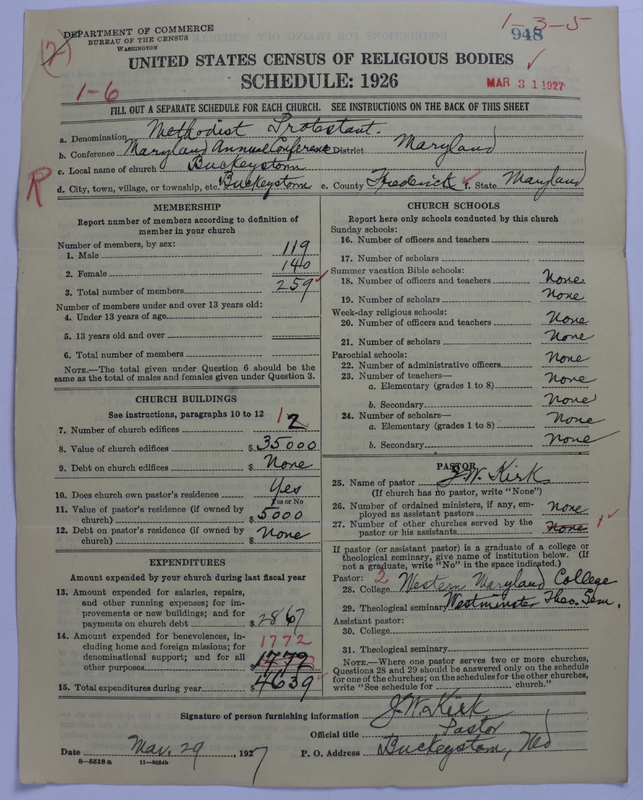 1-3-5
DEPARTMENT OF COMMERCE
(2)
BUREAU OF THE CENSUS
WASHINGTON
948
UNITED STATES CENSUS OF RELIGIOUS BODIES
SCHEDULE: 1926
MAR 31 1927
1-6
FILL OUT A SEPARATE SCHEDULE FOR EACH CHURCH. SEE INSTRUCTIONS ON THE BACK OF THIS SHEET
a. Denomination Methodist Protestant.
b. Conference Maryland Annual Conference District Maryland
c. Local name of church Buckeystom
R
d. City, town, village, or township, etc. Buckeystom e. County Frederick f. State Maryland
MEMBERSHIP
Report number of members according to definition of
member in your church
Number of members, by sex:
1. Male 119
2. Female 140
3. Total number of members 259
Number of members under and over 13 years old:
4. Under 13 years of age
5. 13 years old and over
6. Total number of members
NOTE.—The total given under Question 6 should be
same as the total of males and females given under Question 3.
CHURCH BUILDINGS
See instructions, paragraphs 10 to 12
7. Number of church edifices 1 2
8. Value of church edifices $ 35000
9. Debt on church edifices $ None
10. Does church own pastor's residence Yes
Yes or No
11. Value of pastor's residence (if owned by
church) $ 5000
12. Debt on pastor's residence (if owned by
church) $ None
EXPENDITURES
Amount expended by your church during last fiscal year
13. Amount expended for salaries, repairs,
and other running expenses; for im-
provements or new buildings; and for
payments on church debt $ 2867
14. Amount expended for benevolences, in-
1772
cluding home and foreign missions; for
denominational support; and for all
other purposes $ 1772
15. Total expenditures during year $ 4639
CHURCH SCHOOLS
Report here only schools conducted by this church
Sunday schools:
16. Number of officers and teachers
17. Number of scholars
Summer vacation Bible schools:
18. Number of officers and teachers None
19. Number of scholars None
Week-day religious schools:
20. Number of officers and teachers None
21. Number of scholars None
Parochial schools:
22. Number of administrative officers None
23. Number of teachers—
a. Elementary (grades 1 to 8) None
b. Secondary None
24. Number of scholars—
a. Elementary (grades 1 to 8) None
b. Secondary None
PASTOR
25. Name of pastor J.W. Kirk
(If church has no pastor, write "None")
26. Number of ordained ministers, if any, em-
ployed as assistant pastors None
27. Number of other churches served by the
pastor or his assistants None 1
If pastor (or assistant pastor) is a graduate of a college or
theological seminary, give name of institution below. (If
not a graduate, write "No" in the space indicated.)
Pastor: 2
28. College Western Maryland College
29. Theological seminary Westminster Theo. Sem.
Assistant pastor:
30. College
31. Theological seminary
NOTE.—Where one pastor serves two or more churches,
Questions 28 and 29 should be answered only on the schedule
for one of the churches; on the schedules for the other churches,
write "See schedule for church."
Signature of person furnishing information J.W. Kirk
Official title Pastor
Date Mar. 29, 1927 P. O. Address Buckeystom, Md
8—5518 a 11—9054b